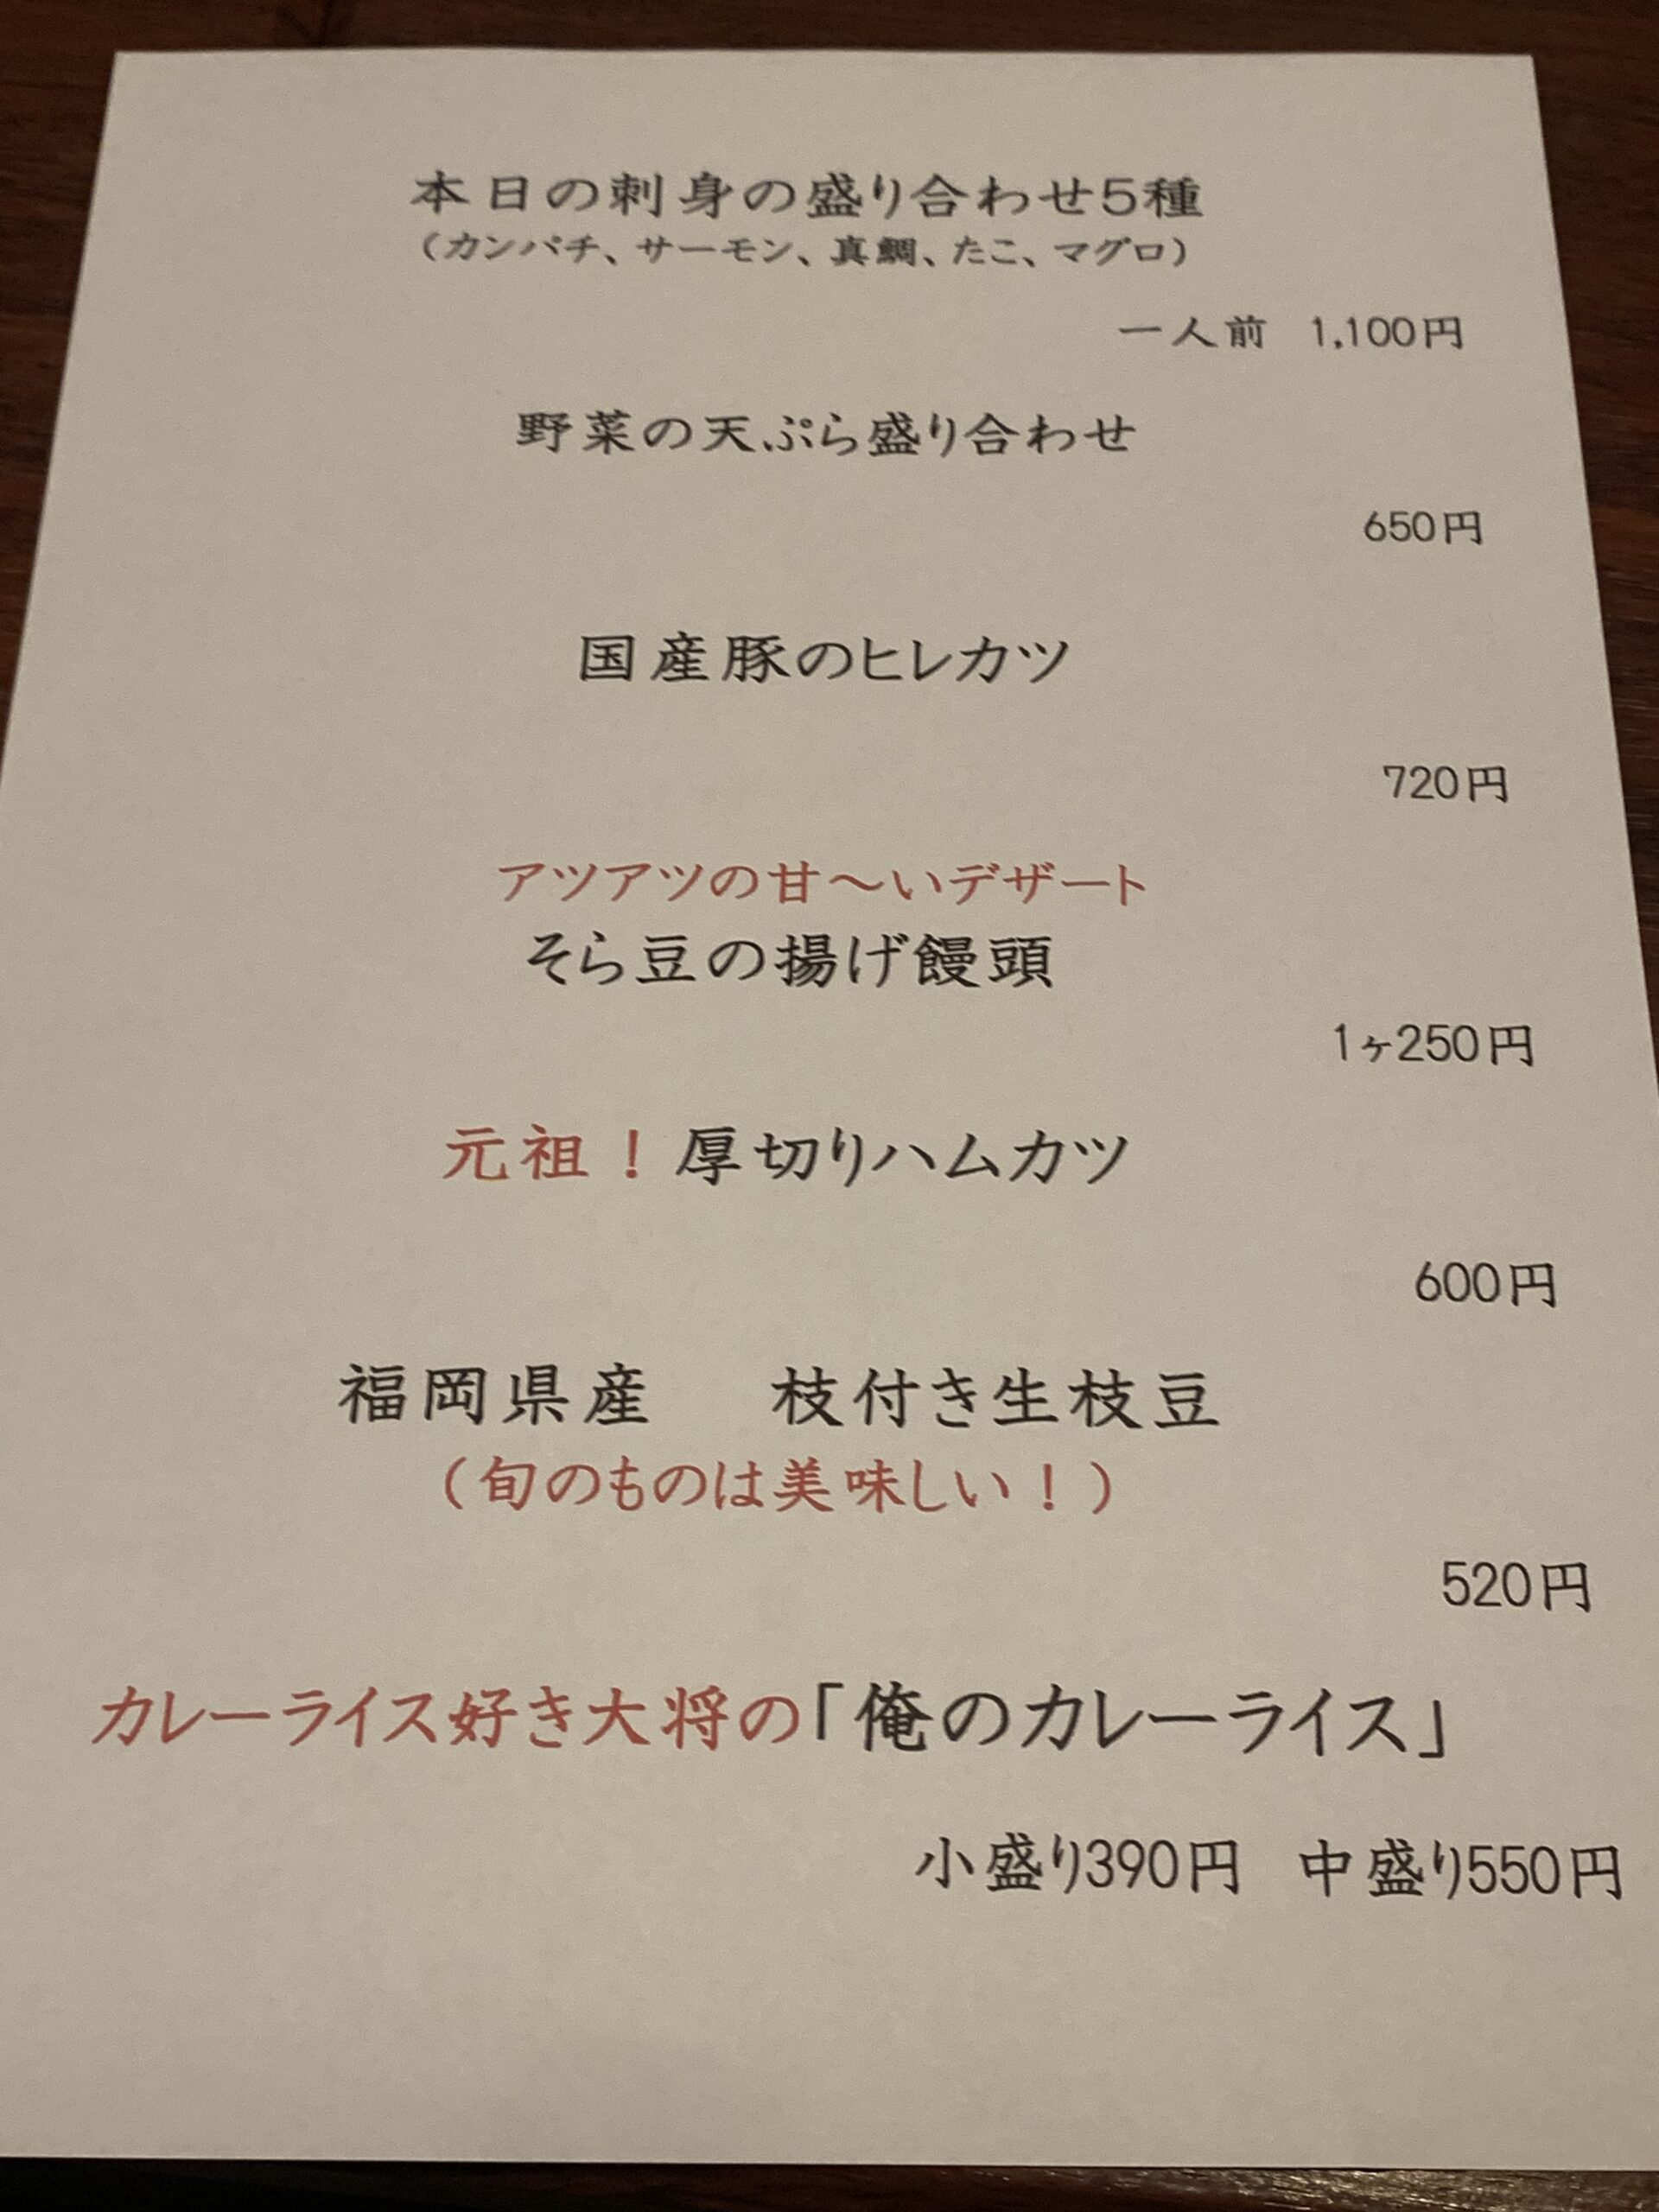 本日の刺身の盛り合わせ5種
（カンパチ、サーモン、真鯛、たこ、マグロ）
一人前 1,100円
野菜の天ぷら盛り合わせ
650円
国産豚のヒレカツ
720円
アツアツの甘～いデザート
そら豆の揚げ饅頭
1ヶ250円
元祖！厚切りハムカツ
600円
福岡県産 枝付き生枝豆
（旬のものは美味しい！）
520円
カレーライス好き大将の「俺のカレーライス」
小盛り390円 中盛り550円